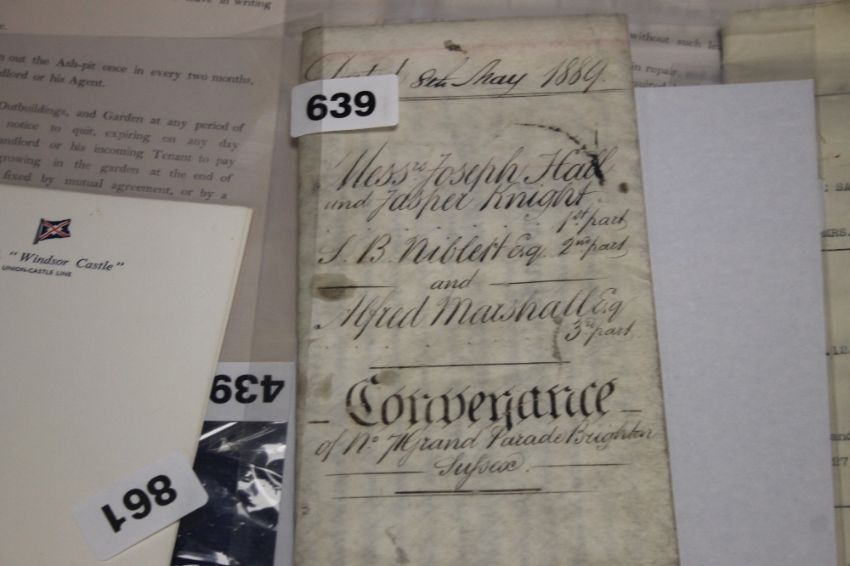 have in writing
out the Ash-pit once in every two months,
or his Agent.
Outbuildings, and Garden at any period of
notice to quit, expiring on any day
or his incoming Tenant to pay
growing in the garden at the end of
fixed by mutual agreement, or by a
"Windsor Castle"
UNION-CASTLE LINE
439
861
639
Dated 8th May 1889.
Messrs Joseph Hall
and Jasper Knight
1st part
S. B. Niblett Esq 2nd part
and
Alfred Marshall Esq
3rd part
Conveyance
of No 71 Grand Parade Brighton
Sussex.
without such
in repair